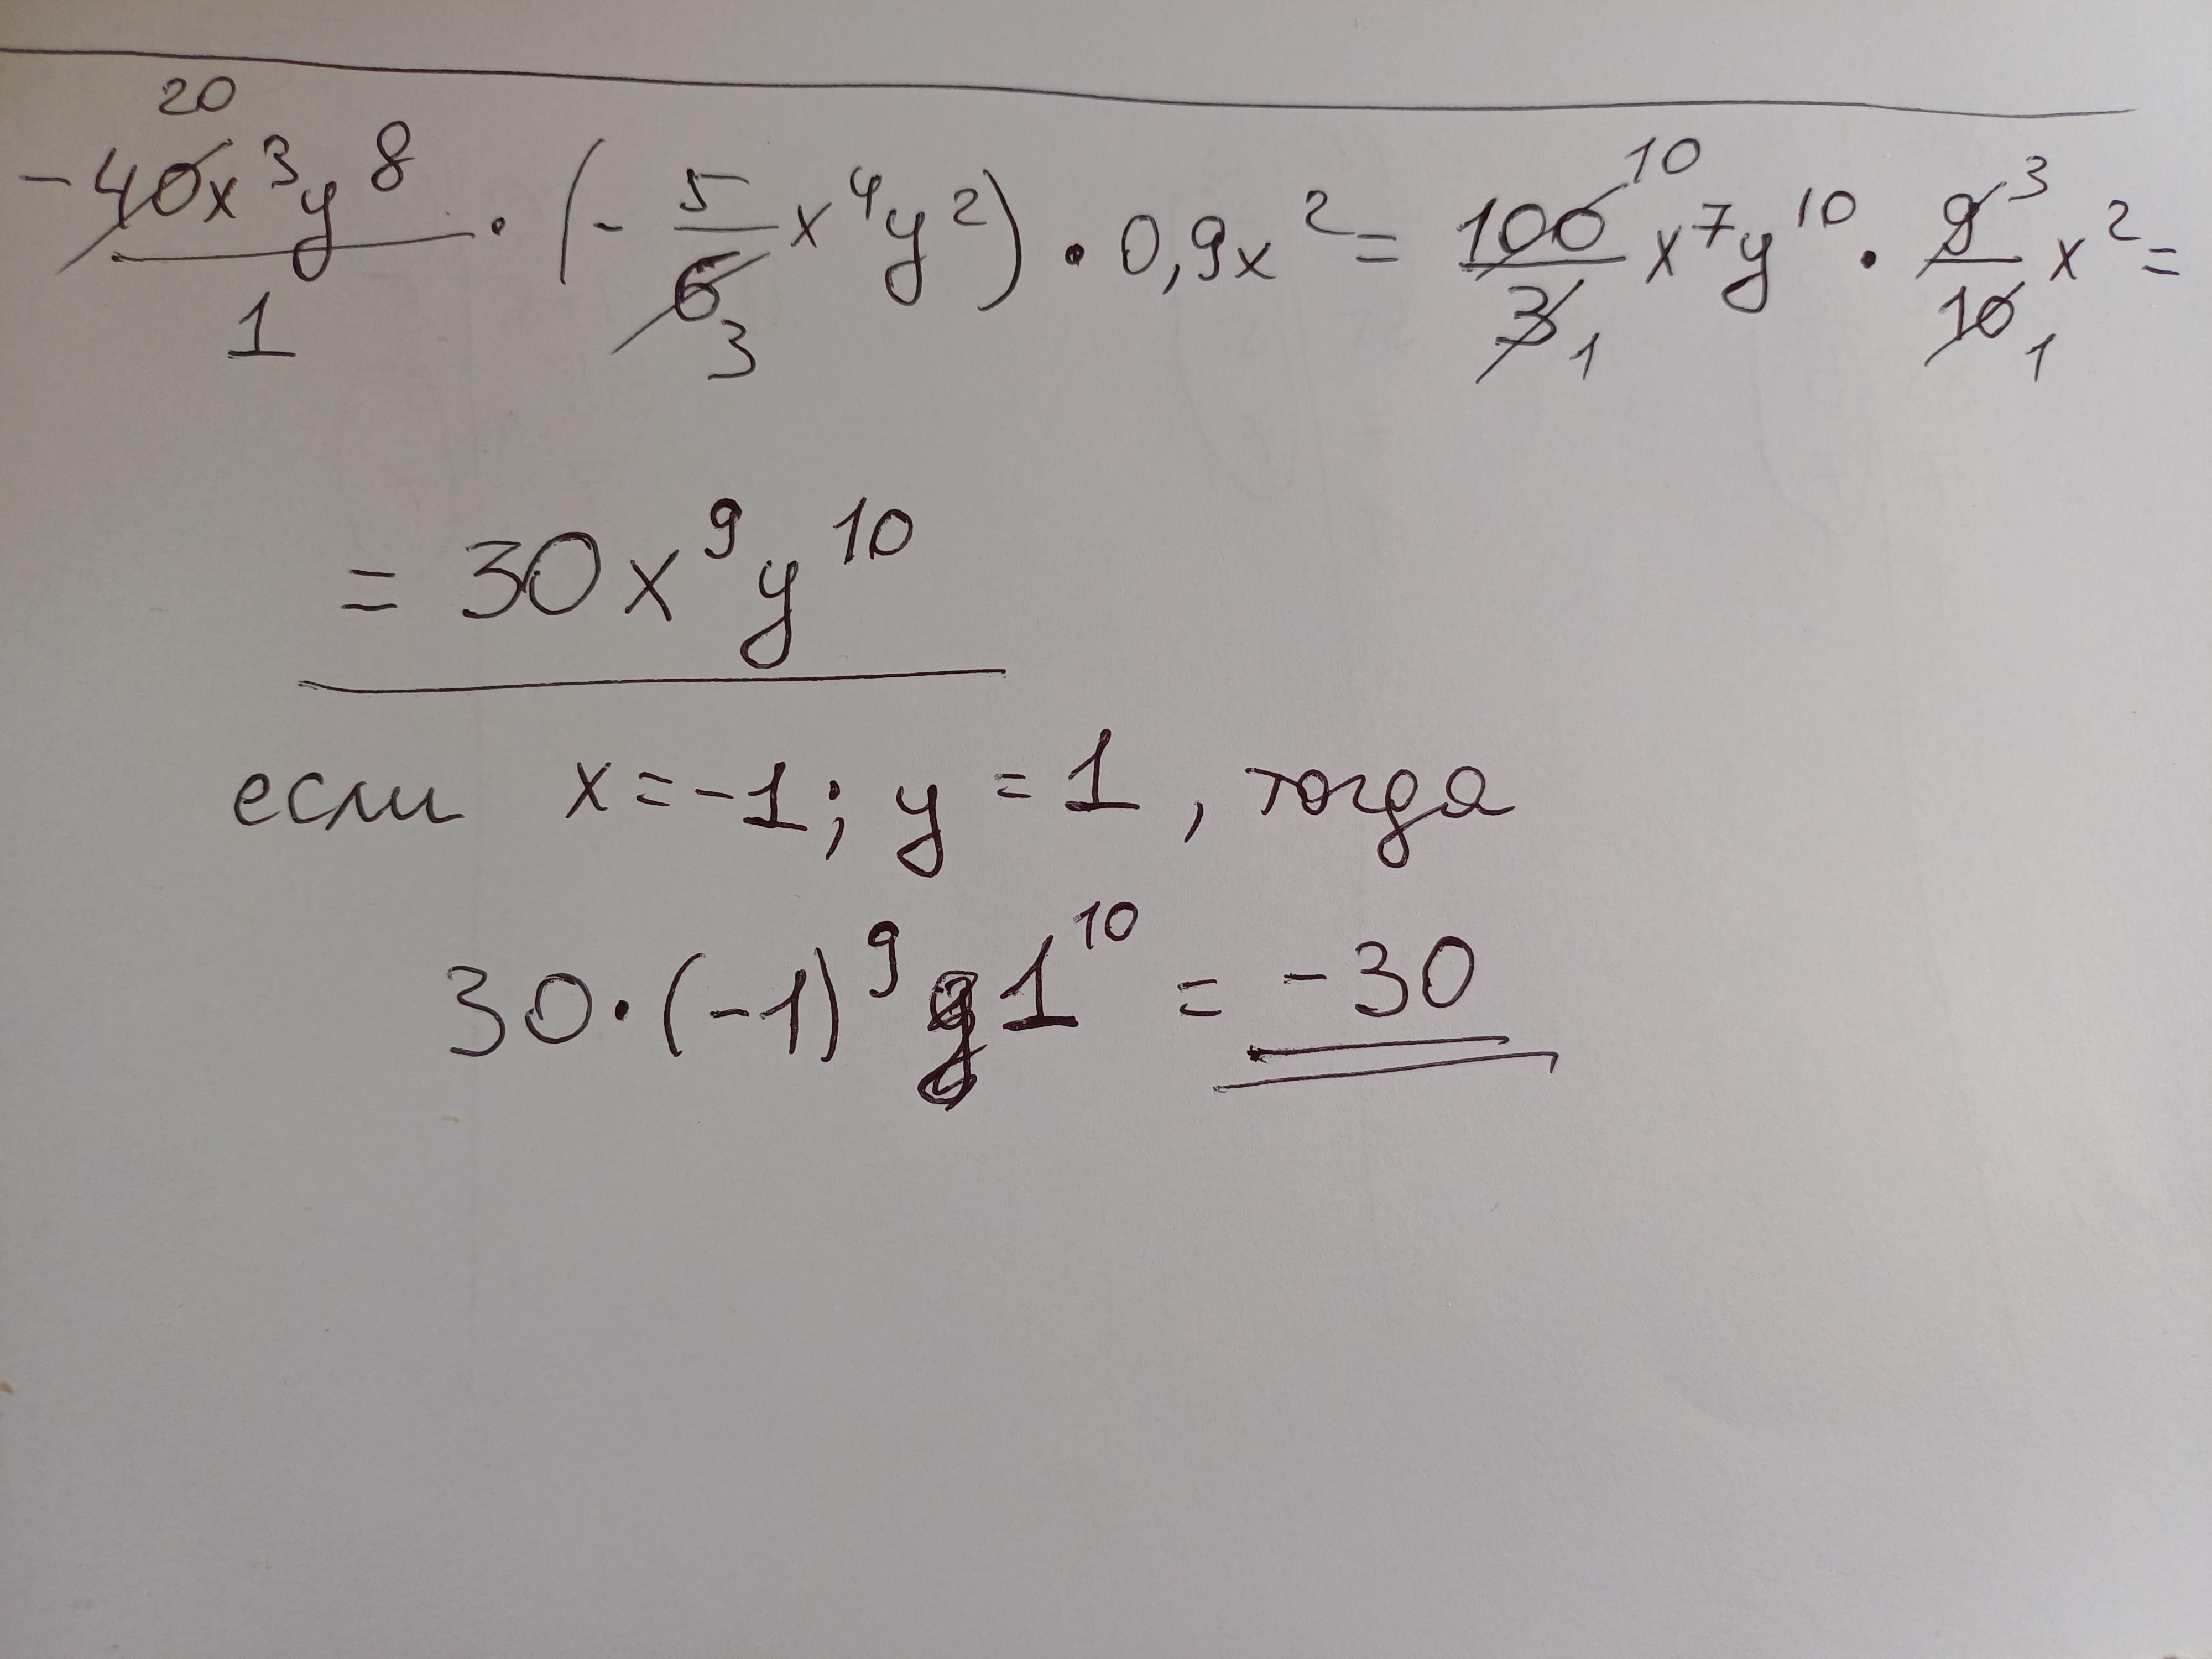 20
-40x³y⁸/1 · (-5/6 3 x⁴y²) · 0,9x² = 100 10/3 1 x⁷y¹⁰ · 9 3/10 1 x² =
= 30x⁹y¹⁰
если x = -1; y = 1, тогда
30·(-1)⁹ 1¹⁰ = -30